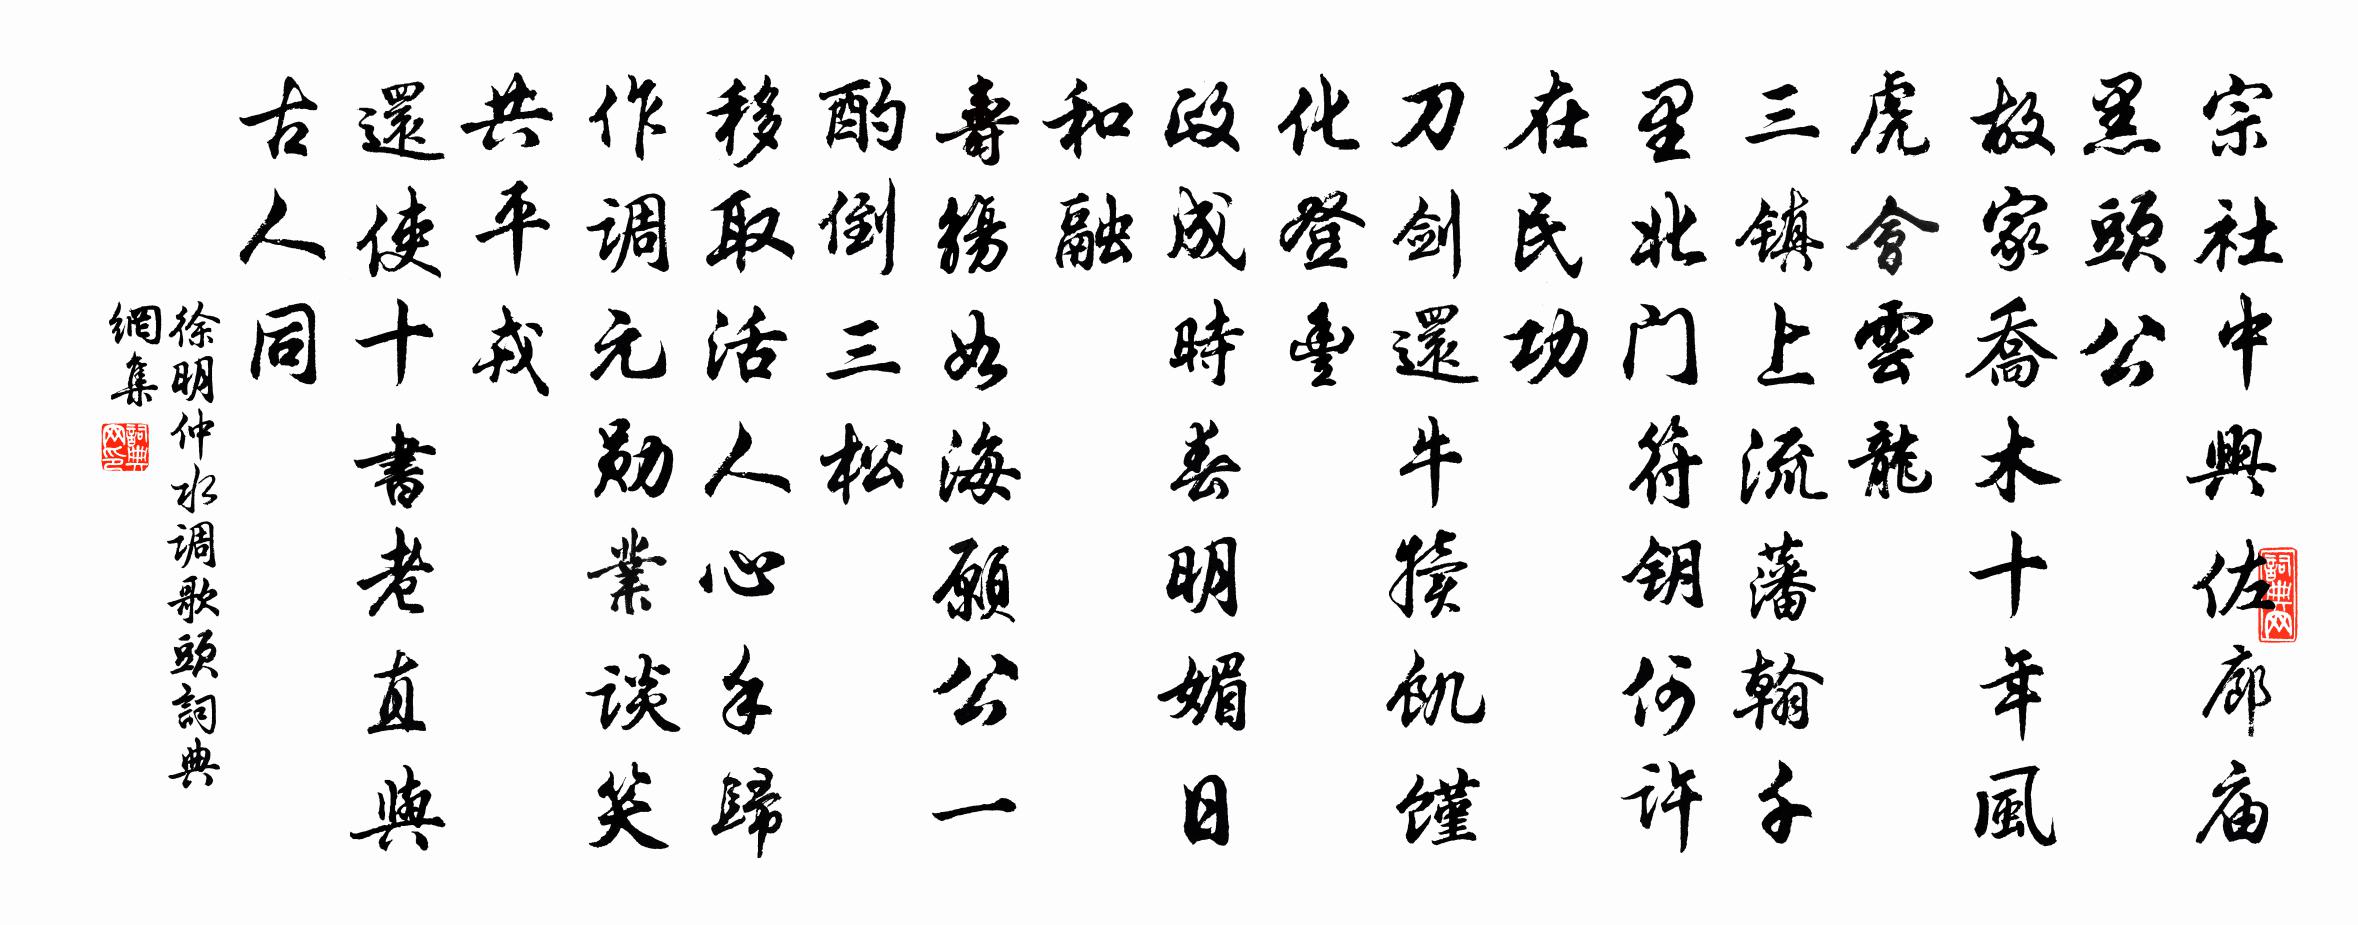 宗社中興佐廊庙
黑頭公
故家喬木十年風
虎會雲龍
三镇上流藩翰千
里北门符钥何许
在民功
刀剑還牛犊饥馑
化登豊
政成時春明媚日
和融
壽觴如海願公一
酌倒三松
移取活人心手歸
作调元勋業谈笑
共平戎
還使十書老直與
古人同
徐明仲水调歌頭詞典
網集
詞典网
詞典网印